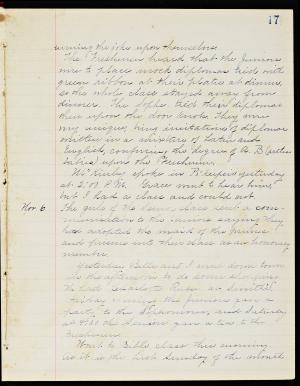 17
the joke upon themselves.
The Freshmen heard that the Juniors
were to place mock diplomas tied with
green ribbon at their plates at dinner
so the whole class stayed away from
dinner. The Sophs tied their diplomas
then upon the door knobs. They were
very unique, being imitations of diplomas
written in a mixture of Latin and
English, conferring the degree of A. B. (
babies) upon the Freshmen.
Mr. spoke in yesterday
at 2:00 P.M. Grace went to hear him,
but I had a class and could not.
Nov. 6. The girls of the Senior class sent a com-
munication to the Juniors saying they
had adopted the of the Junior
and him into their class as an honorary
member.
Yesterday and I went down town
in the afternoon to do some shopping.
We had at Smith's.
Friday evening the Juniors gave a
party to the Sophomores, and Saturday
at 4:00 the Seniors gave a tea to the
Freshmen.
Went to Bible class this morning
as it is the first Sunday of the month